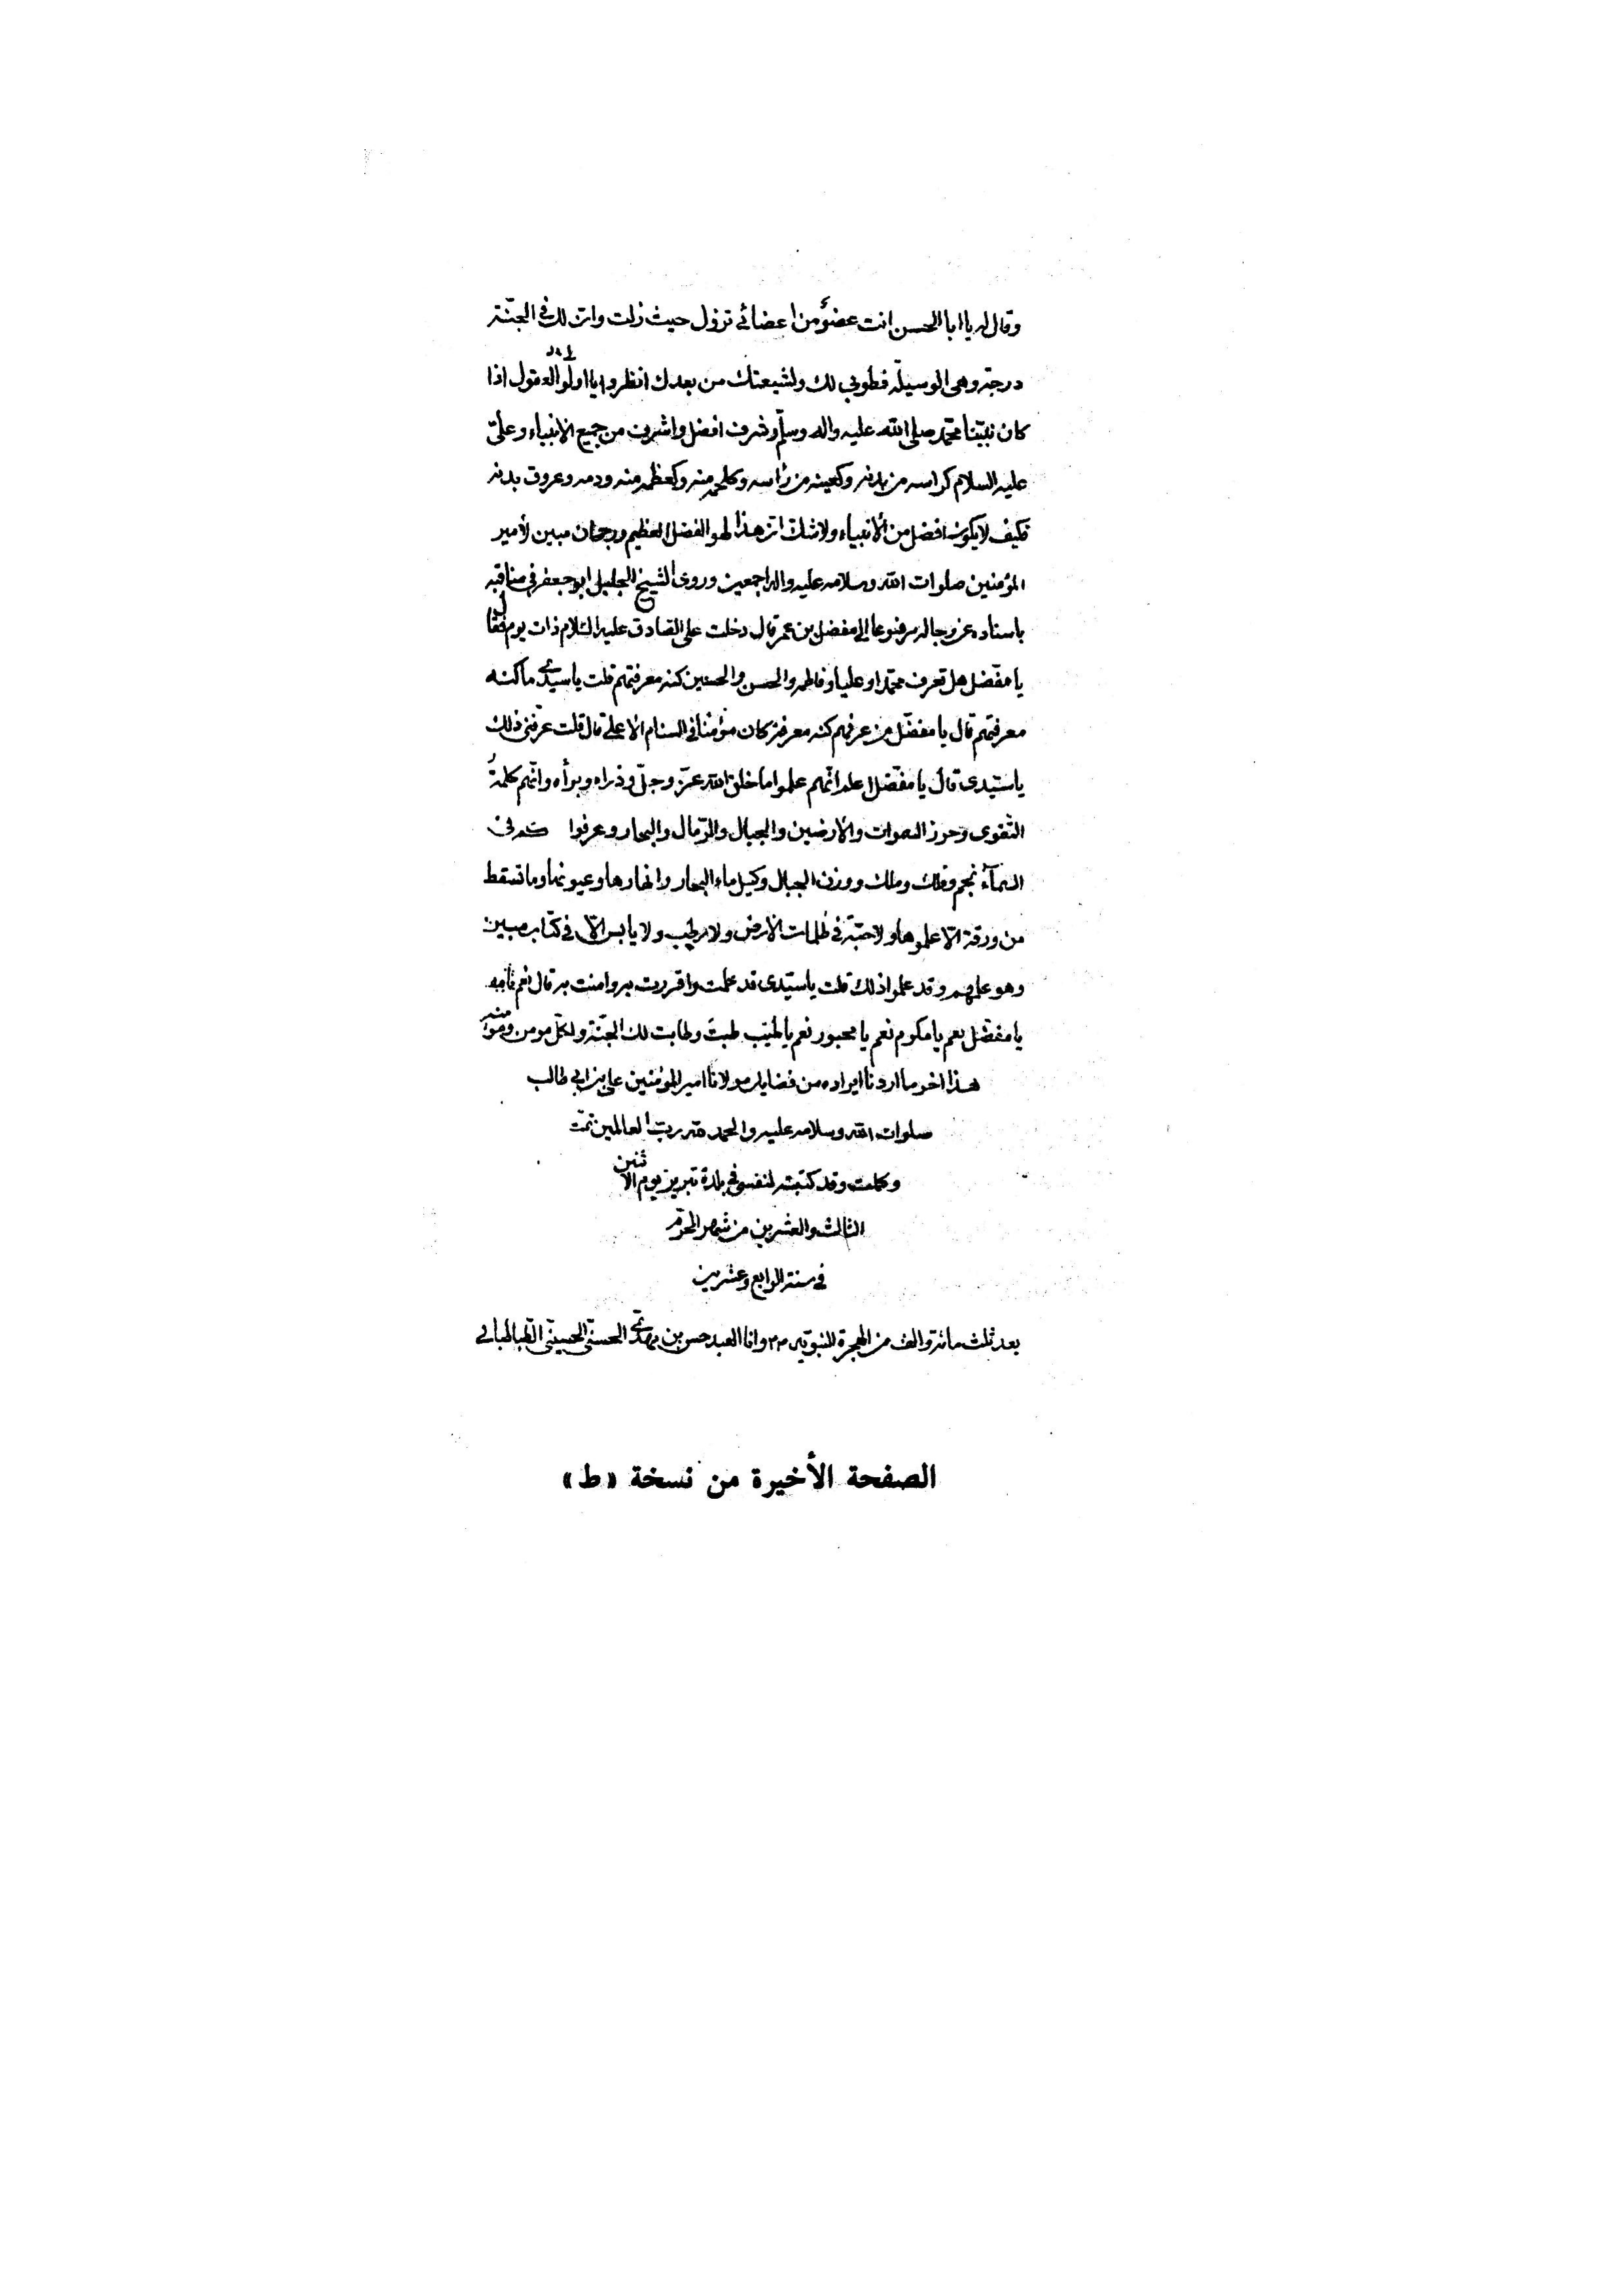 وقال له يا ابا الحسن انت عضؤ من اعضائى تزول حيث زلت وان لك فى الجنّة
درجة وهى الوسيلة فطوبى لك ولشيعتك من بعدك انظروا يا اولو العقول اذا
كان نبيّنا محمّد صلى الله عليه واله وسلّم وشرف افضل واشرف من جميع الانبياء وعلىّ
عليه السلام كراسه من بدنه وكعينه من رأسه وكلحمه منه وكعظمه منه ودمه وعروق بدنه
فكيف لا يكون افضل من الأنبياء ولا شك ان هذا لهو الفضل العظيم ورجحان مبين لأمير
المؤمنين صلوات الله وسلامه عليه واله اجمعين وروى الشيخ الجليل ابو جعفر فى مناقبه
باسناده عن رجاله مرفوعا الى مفضل بن عمر قال دخلت على الصادق عليه السّلام ذات يوم فقال
يا مفضّل هل تعرف محمّدا وعليا وفاطمه والحسن والحسين كنه معرفتهم قلت يا سيدى ما كنه
معرفتهم قال يا مفضّل من عرفهم كنه معرفتهم كان مؤمنا فى السنام الاعلى قال قلت عرّفنى ذلك
يا سيّدى قال يا مفضّل اعلم انّهم علموا ما خلق الله عزّ وجلّ وذراه وبرأه وانّهم كلمةُ
التّقوى وحرز السموات والارضين والجبال والرّمال والبحار وعرفوا كم فى
السمآء نجم وفلك وملك ووزن الجبال وكيل ماء البحار وانهارها وعيونها وما تسقط
من ورقة الّا علموها ولا حبّة فى ظلمات الأرض ولا رطب ولا يابس الّا فى كتاب مبين
وهو علمهم وقد علموا ذلك قلت يا سيّدى قد علمت واقررت به وامنت به قال نعم
يا مفضّل نعم يا مكرم نعم يا محبور نعم يا طيّب طبتَ وطابت لك الجنّة ولكلّ مومن ومؤمنه
هذا اخر ما اردنا ايراده من فضايل مولانا امير المؤمنين على بن ابى طالب
صلوات الله وسلامه عليه والحمد لله ربّ العالمين تمّت
وكملت وقد كتبته لنفسى فى بلدة تبريز يوم الاثنين
الثالث والعشرين من شهر المحرّم
فى سنة الرابع وعشرين
بعد ثلث مائة والف من الهجرة النّبويّه وانا العبد حسن بن مهدى الحسنّى الحسينّى الطّباطبائى
الصفحة الأخيرة من نسخة «ط»